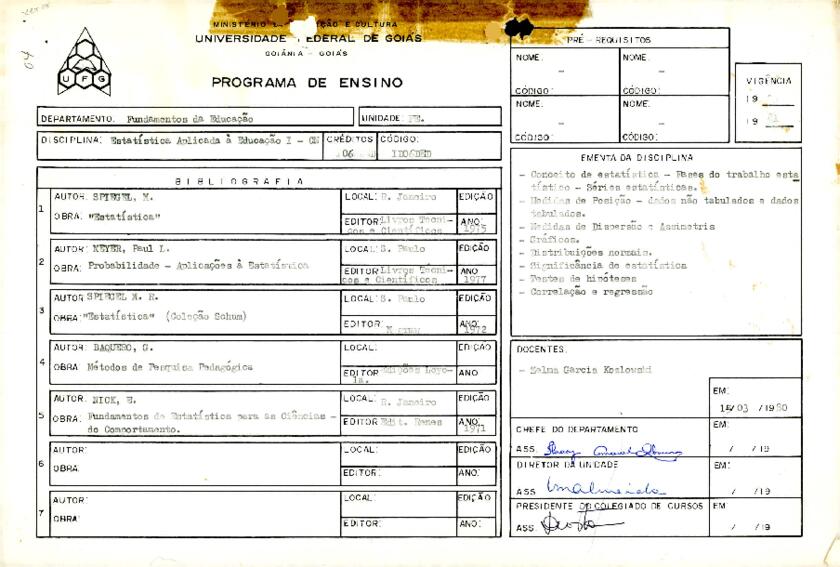 04
UFG
MINISTÉRIO E CULTURA
UNIVERSIDADE FEDERAL DE GOIÁS
GOIÂNIA - GOIÁS
PROGRAMA DE ENSINO
DEPARTAMENTO: Fundamentos da Educação UNIDADE: FE.
DISCIPLINA: Estatística Aplicada à Educação I - CN CRÉDITOS 06 CÓDIGO:
BIBLIOGRAFIA
1 AUTOR: SPIEGEL, M. LOCAL: R. Janeiro EDIÇÃO
OBRA: "Estatística" EDITOR: Livros Tecni-
cos e Científicos ANO: 1975
2 AUTOR: MEYER, Paul L. LOCAL: S. Paulo EDIÇÃO
OBRA: Probabilidade - Aplicações à Estatística EDITOR Livros Tecni-
cos e Científicos ANO 1977
3 AUTOR SPIEGEL M. R. LOCAL: S. Paulo EDIÇÃO
OBRA: "Estatística" (Coleção Schum) EDITOR: ANO: 1972
4 AUTOR: BAQUERO, G. LOCAL: EDIÇÃO
OBRA: Métodos de Pesquisa Pedagógica EDITOR Edições Loyo-
la. ANO
5 AUTOR: NICK, E. LOCAL: R. Janeiro EDIÇÃO
OBRA: Fundamentos de Estatística para as Ciências -
do Comportamento. EDITOR Edit. Renes ANO: 1971
6 AUTOR: LOCAL: EDIÇÃO
OBRA: EDITOR: ANO:
7 AUTOR: LOCAL: EDIÇÃO
OBRA: EDITOR: ANO:
PRÉ-REQUISITOS
NOME: - NOME: -
CÓDIGO: CÓDIGO:
NOME: - NOME: -
CÓDIGO: CÓDIGO:
VIGÊNCIA
19
19 81
EMENTA DA DISCIPLINA
- Conceito de estatística - Fases do trabalho esta
tístico - Séries estatísticas.
- Medidas de Posição - dados não tabulados e dados
tabulados.
- Medidas de Dispersão e Assimetria
- Gráficos.
- Distribuições normais.
- Significância de estatística
- Testes de hipóteses
- Correlação e regressão
DOCENTES:
- Zelma Garcia Kozlowski
EM:
14/03 /1980
CHEFE DO DEPARTAMENTO EM:
ASS. / /19
DIRETOR DA UNIDADE EM:
ASS / /19
PRESIDENTE DO COLEGIADO DE CURSOS EM
ASS. / /19